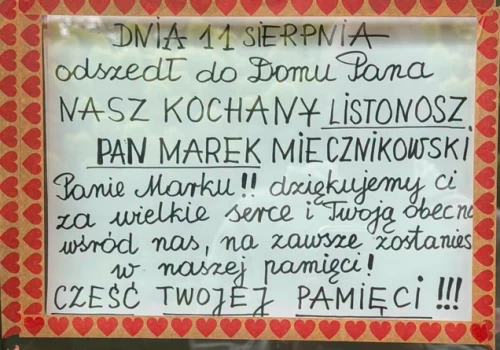 DNIA 11 SIERPNIA
odszedł do Domu Pana
NASZ KOCHANY LISTONOSZ
PAN MAREK MIECZNIKOWSKI
Panie Marku!! dziękujemy ci
za wielkie serce i Twoją obecno
wśród nas, na zawsze zostanies
w naszej pamięci!
CZEŚĆ TWOJEJ PAMIĘCI!!!